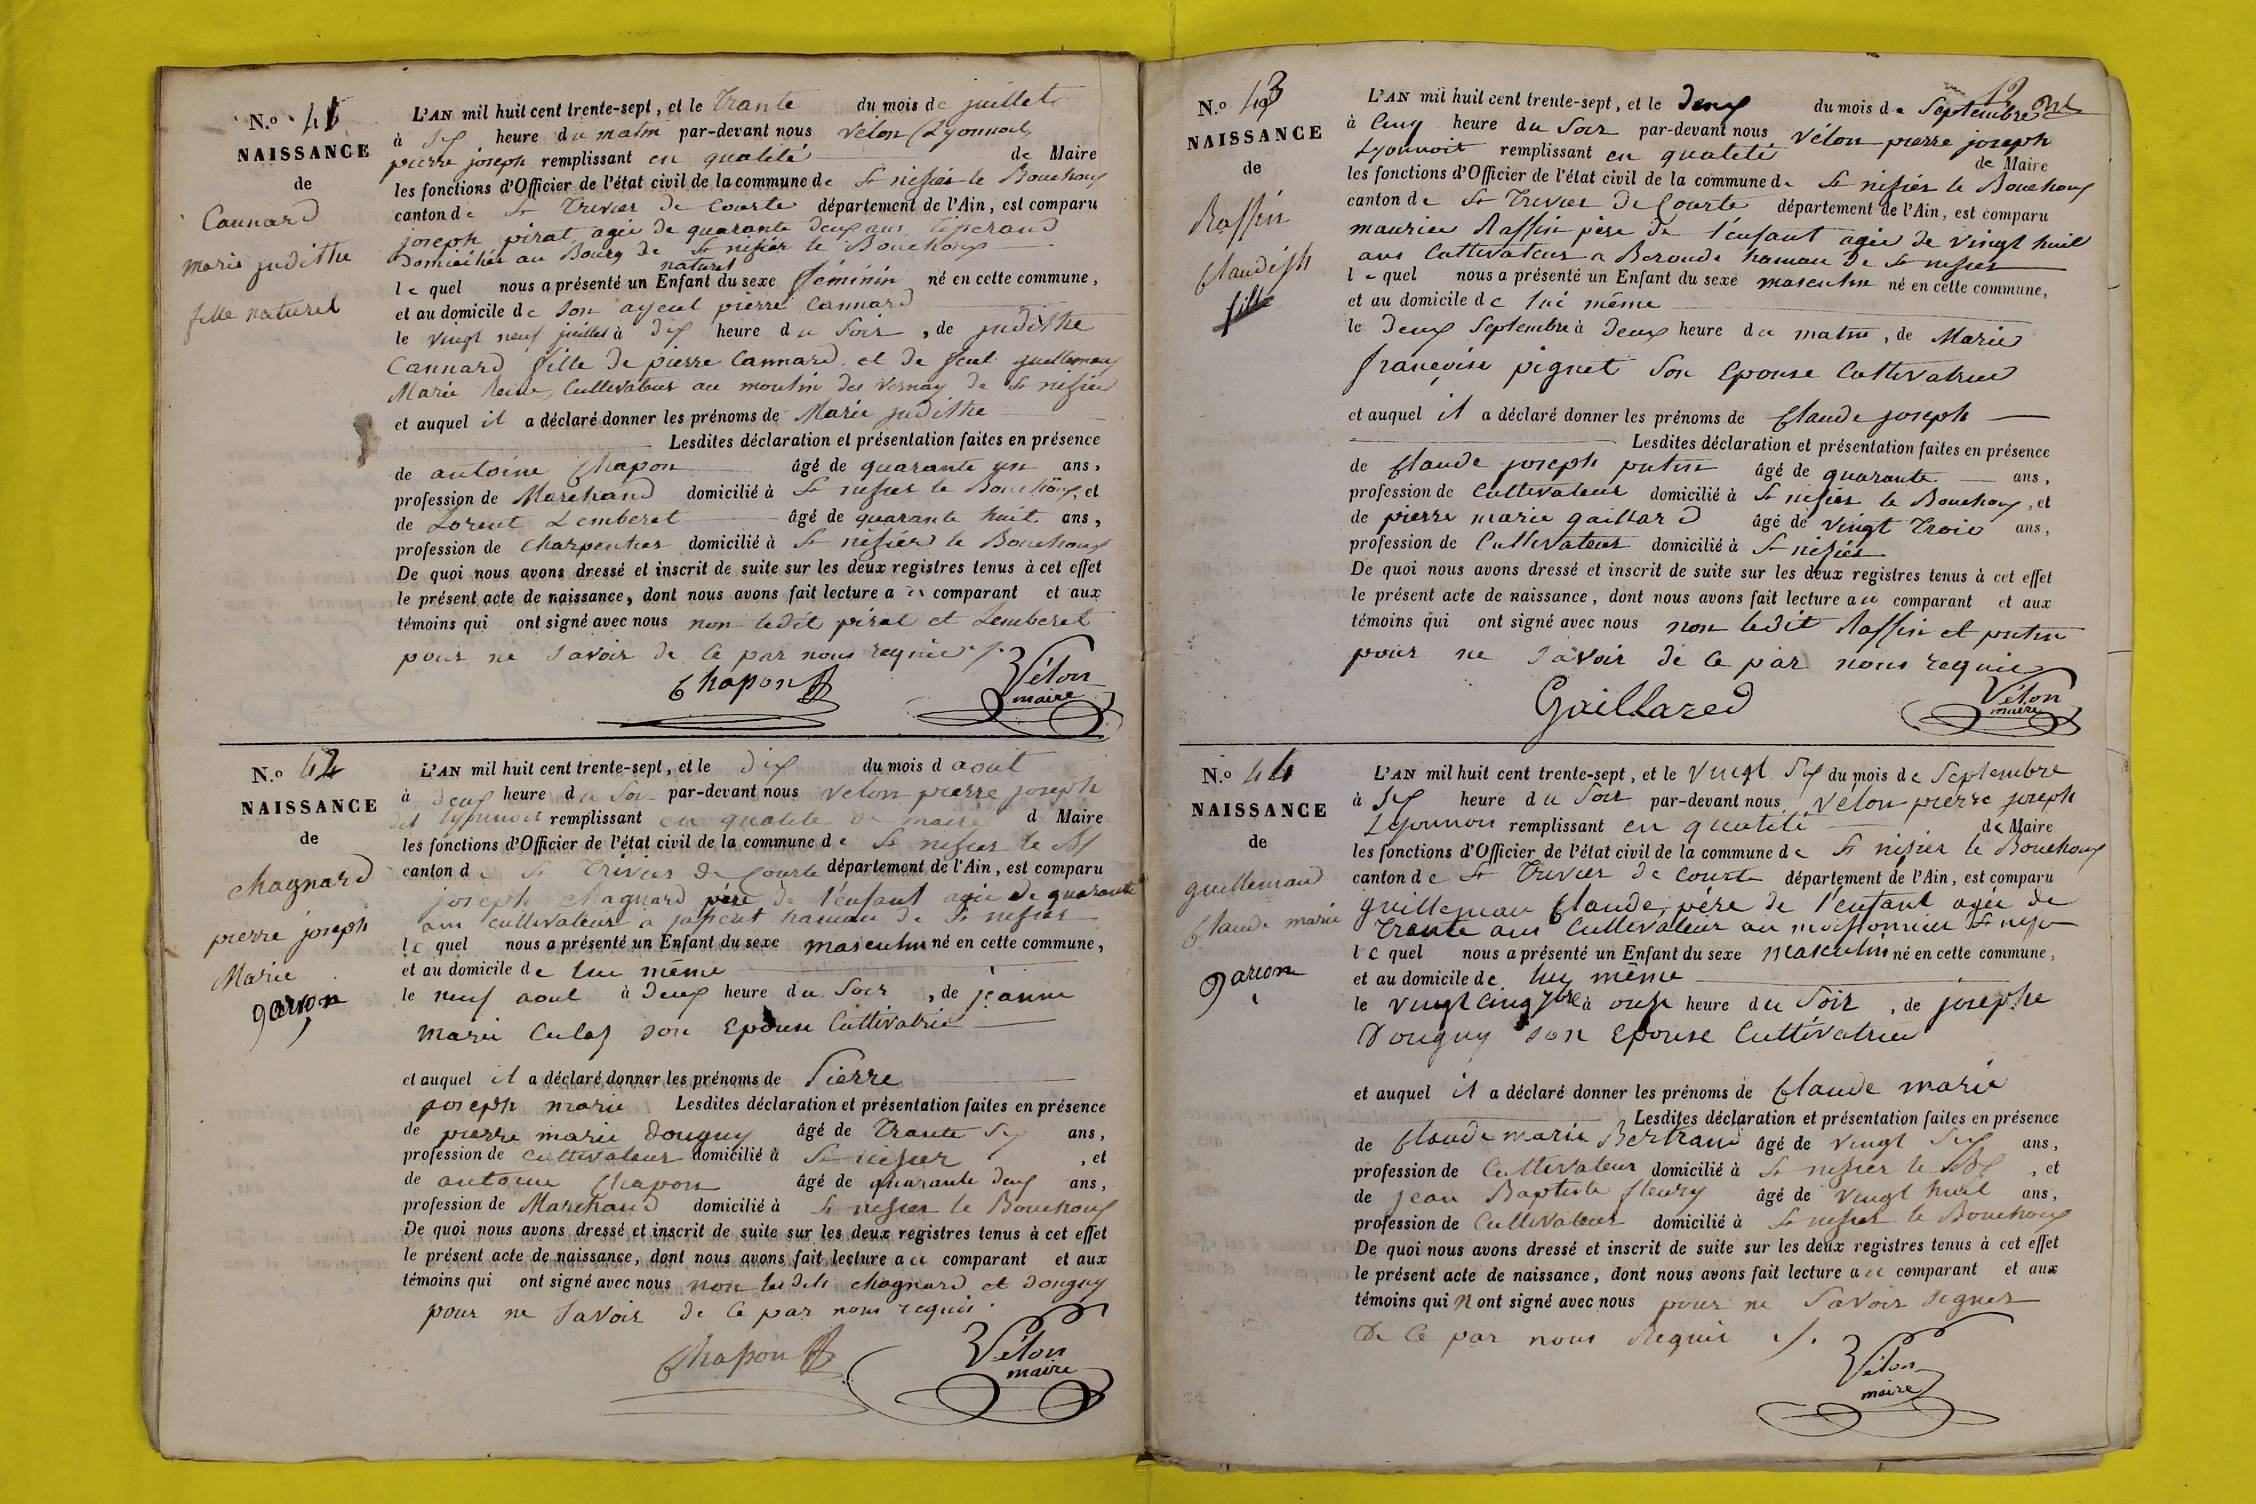 N.º 41
NAISSANCE
de
Cannard
marie judithe
fille naturel
L'AN mil huit cent trente-sept, et le trante du mois de juillet
à six heure du matin par-devant nous Vélon Lyonnois
pierre joseph remplissant en qualité de Maire
les fonctions d'Officier de l'état civil de la commune de St nisier le Bouchoux
canton de St Trivier de Courte département de l'Ain, est comparu
joseph pirat agée de quarante deux ans tisserand
Domicilié au Bourg de St nisier le Bouchoux
naturel
le quel nous a présenté un Enfant du sexe féminin né en cette commune,
et au domicile de son ayeul pierre Cannard
le vingt neuf juillet à dix heure du soir, de judithe
Cannard fille de pierre Cannard et de feue guillemaux
Marie Reine, Cultivateur au moulin du Vernay de St nisier
et auquel il a déclaré donner les prénoms de Marie judithe
Lesdites déclaration et présentation faites en présence
de antoine Chapon âgé de quarante un ans,
profession de Marchand domicilié à St nisier le Bouchoux, et
de Lorent Lemberet âgé de quarante huit ans,
profession de charpentier domicilié à St nisier le Bouchoux
De quoi nous avons dressé et inscrit de suite sur les deux registres tenus à cet effet
le présent acte de naissance, dont nous avons fait lecture au comparant et aux
témoins qui ont signé avec nous non ledit pirat et Lemberet
pour ne savoir de ce par nous requis
Chapon Vélon
maire
N.º 42
NAISSANCE
de
Chagnard
pierre joseph
Marie
garçon
L'AN mil huit cent trente-sept, et le dix du mois d aout
à deux heure du Soir par-devant nous Velon pierre joseph
dit lyonnois remplissant en qualité de maire d Maire
les fonctions d'Officier de l'état civil de la commune de St nisier le Bx
canton de St Trivier de Courte département de l'Ain, est comparu
joseph chagnard père de l'enfant agée de quarante
ans cultivateur a hameau de St nisier
le quel nous a présenté un Enfant du sexe masculin né en cette commune,
et au domicile de lui même
le neuf aout à deux heure du Soir, de jeanne
marie Culaz son Epouse Cultivatrice
et auquel il a déclaré donner les prénoms de Pierre
joseph marie Lesdites déclaration et présentation faites en présence
de pierre marie Douguy âgé de Trante Six ans,
profession de Cultivateur domicilié à St nisier, et
de antoine Chapon âgé de quarante deux ans,
profession de Marchand domicilié à St nisier le Bouchoux
De quoi nous avons dressé et inscrit de suite sur les deux registres tenus à cet effet
le présent acte de naissance, dont nous avons fait lecture au comparant et aux
témoins qui ont signé avec nous non les dits chagnard et Douguy
pour ne savoir de ce par nous requis
Chapon Vélon
maire
12
N.º 43
NAISSANCE
de
Raffin
Claude jph
fille
L'AN mil huit cent trente-sept, et le deux du mois de Septembre
à Cinq heure du Soir par-devant nous Vélon pierre joseph
Lyonnoit remplissant en qualité de Maire
les fonctions d'Officier de l'état civil de la commune de St nisier le Bouchoux
canton de St Trivier de Courte département de l'Ain, est comparu
maurice Raffin père de l'enfant agée de vingt huit
ans Cultivateur a Beroude hameau de St nisier
le quel nous a présenté un Enfant du sexe masculin né en cette commune,
et au domicile de lui même
le deux Septembre à deux heure du matin, de Marie
françoise pignet Son Epouse Cultivatrice
et auquel il a déclaré donner les prénoms de Claude joseph
Lesdites déclaration et présentation faites en présence
de Claude joseph putin âgé de quarante ans,
profession de Cultivateur domicilié à St nisier le Bouchoux, et
de pierre marie gaillard âgé de vingt trois ans,
profession de Cultivateur domicilié à St nisier
De quoi nous avons dressé et inscrit de suite sur les deux registres tenus à cet effet
le présent acte de naissance, dont nous avons fait lecture au comparant et aux
témoins qui ont signé avec nous non ledit Raffin et putin
pour ne savoir de ce par nous requis
Gaillared Vélon
maire
N.º 44
NAISSANCE
de
guillemaud
Claude marie
garcon
L'AN mil huit cent trente-sept, et le vingt Six du mois de Septembre
à Six heure du Soir par-devant nous Vélon pierre joseph
Lyonnois remplissant en qualité de Maire
les fonctions d'Officier de l'état civil de la commune de St nisier le Bouchoux
canton de St Trivier de Courte département de l'Ain, est comparu
guillemau Claude, père de l'enfant agée de
Trante ans Cultivateur au moissonnier St
le quel nous a présenté un Enfant du sexe masculin né en cette commune,
et au domicile de luy même
le vingt Cinq 7bre à onze heure du Soir, de josephe
Douguy son Epouse Cultivatrice
et auquel il a déclaré donner les prénoms de Claude marie
Lesdites déclaration et présentation faites en présence
de Claude marie Bertrand âgé de vingt Six ans,
profession de Cultivateur domicilié à St nisier le Bx, et
de jean Baptiste fleury âgé de vingt huit ans,
profession de Cultivateur domicilié à St nisier le Bouchoux
De quoi nous avons dressé et inscrit de suite sur les deux registres tenus à cet effet
le présent acte de naissance, dont nous avons fait lecture au comparant et aux
témoins qui n ont signé avec nous pour ne Savoir signer
De ce par nous Requis
Vélon
maire